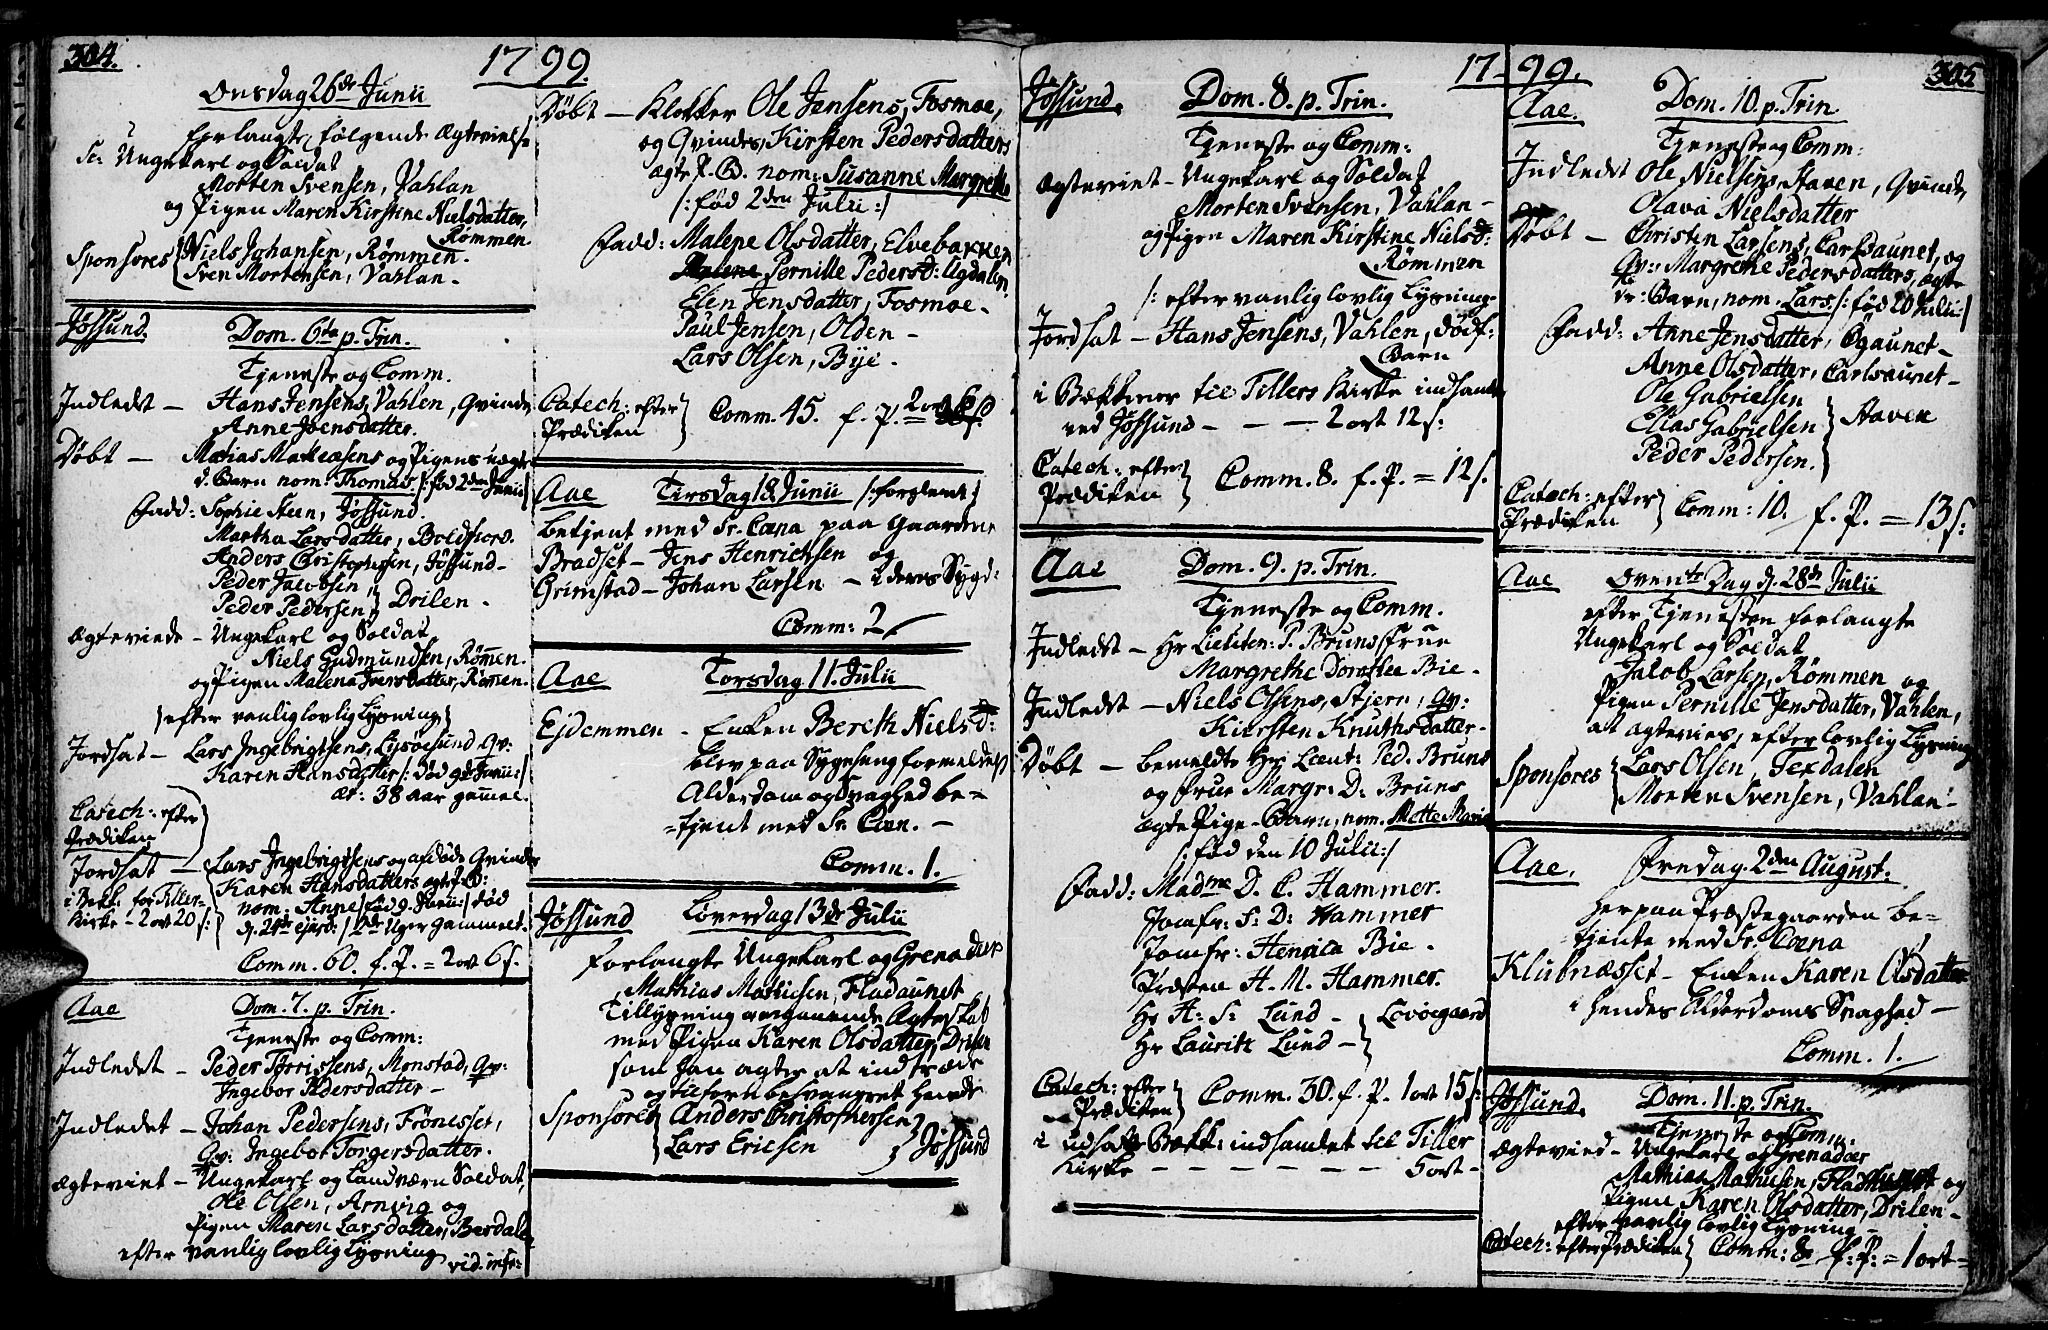 304.
1799.
Onsdag 26de Junii
Forlangte følgende Ægtevielse
sc: Ungekarl og Soldat
Morten Svensen, Vahlan
og Pigen Maren Kirstine Nielsdatter,
Rømmen.
Sponsores Niels Johansen, Rømmen.
Sven Mortensen, Vahlan.
Jøssund.
Dom. 6te p. Trin.
Tjeneste og Comm.
Indledet — Hans Jensens, Vahlen, Qvinde
Anne Joensdatter.
Døbt — Matias Mathiæsens og Pigens uægte
d. Barn nom. Thomas /: fød 2den Junii :/
Fadd: Sophie Steen, Jøssund.
Martha Larsdatter, Boldfiord.
Anders Christophersen, Jøssund —
Peder Jacobsen
Peder Pedersen } Drilen.
Ægteviede — Ungekarl og Soldat
Niels Gudmundsen, Rømen.
og Pigen Malena Iversdatter, Rømen.
/ efter vanlig lovlig Lysning /
Jordsat — Lars Ingebrigtsens, Lysøesund Qv:
Karen Hansdatter /: død 9de Junii :/
æt: 38 aar gamel.
Catech: efter
Prædiken
Jordsat — Lars Ingebrigtsens og afdøde Qvinde
Karen Hansdatters ægte
nom: Anne /: fød 9. Junii :/ død
i Bekk. for Tiller-
Kirke — 2 ort 20 s:
Uger gammel.
Comm. 60. f. P. = 2 ort 6 s.
Aae
Dom. 7. p. Trin.
Tjeneste og Comm:
Indledet — Peder Torrissens, Monstad, Qv:
Ingebor Pedersdatter —
Indledet — Johan Pedersens, Frønesset,
Qv: Ingebor Torgersdatter.
Ægteviet — Ungekarl og Landværn Soldat,
Ole Olsen, Arnvig og
Pigen Maren Larsdatter, Berdalen
efter vanlig lovlig Lysning
vid. infr:
Døbt — Klokker Ole Jensens, Fosmoe,
og Qvindes, Kirsten Pedersdatters
ægte P. B. nom: Susanne Margrethe
/: fød 2den Julii :/
Fadd: Malene Olsdatter, Elvebakken
Pernille Pedersd: Agdalen
Elen Jensdatter, Fosmoe.
Paul Jensen, Olden —
Lars Olsen, Bye.
Catech: efter
Prædiken } Comm. 45. f. P. = 2 ort
Aae
Tirsdag 18. Junii /: forglemt :/
betjent med Sr. Cœna paa Gaardene
Bradset — Jens Henrichsen og
Grimstad — Johan Larsen — i deres Sygd:
Comm: 2
Aae
Torsdag 11. Julii
Ejdemmen — Enken Bereth Nielsd:
blev paa Sygeseng formedelst
Alderdom og Svaghed be=
=tjent med Sr. Cæn. —
Comm. 1.
Jøssund
Løverdag 13de Julii
forlangte Ungekarl og Grenadeer
Mathias Mathisen, Fladaunet
Tillysning angaaende Ægteskab
med Pigen Karen Olsdatter, Drilen
som han agter at indtræde
og tilforn besvangret hende
Sponsores Anders Christophersen
Lars Ericsen } Jøssund
305
1799.
Jøssund.
Dom. 8. p. Trin.
Tjeneste og Comm:
Ægteviet — Ungekarl og Soldat
Morten Svensen, Vahlan —
og Pigen Maren Kirstine Nielsd:
Rømmen
/: efter vanlig lovlig Lysning
Jordsat — Hans Jensens, Vahlen, dødf:
Barn
i Bækkener til Tillers Kirke indsamlet
ved Jøssund — — — 2 ort 12 s:
Catech: efter
Prædiken } Comm. 8. f. P. = 12 s.
Aae
Dom. 9. p. Trin.
Tjeneste og Comm.
Indledet — Hr Lieuten: P. Bruns Frue
Margrethe Dorothe Bie —
Indledet — Niels Olsens, Stjern, Qv:
Kirsten Knuthsdatter —
Døbt — bemeldte Hr Lieut: Ped. Bruns
og Frue Margr: D: Bruns
ægte Pige-Barn, nom. Mette Maria
/: fød den 10 Julii :/
Fadd: Madme D. C. Hammer.
Jomfr: S: D: Hammer
Jomfr: Henrica Bie.
Præsten H. M. Hammer.
Hr H: S: Lund —
Hr Lauritz Lund — } Lovøegaard
Catech: efter
Prædiken } Comm. 30. f. P. 1 ort 15 s:
i udsatte Bækk: indsamlet til Tiller
Kirke — — — — — — 5 ort —
Aae.
Dom. 10. p. Trin
Tjeneste og Comm:
Indledet Ole Nielsens, Haven, Qvinde,
Olava Nielsdatter
Døbt — Christen Larsens, Carlsaunet, og
Qv: Margrethe Pedersdatters, ægte
dr: Barn, nom. Lars /: fød 20 Julii :/
Fadd: Anne Jensdatter, Opaunet —
Anne Olsdatter, Carlsaunet —
Ole Gabrielsen
Elias Gabrielsen } Haven
Peder Pedersen.
Catech: efter
Prædiken } Comm: 10. f. P. = 13 s:
Aae
Ovente Dag d. 28de Julii
efter Tjenesten forlangte
Ungekarl og Soldat
Jacob Larsen, Rømmen og
Pigen Pernille Jensdatter, Vahlen,
at ægtevies, efter lovlig Lysning
Sponsores Lars Olsen, Texdalen
Morten Svensen, Vahlan —
Aae.
Fredag 2den August.
her paa Præstegaarden be=
tjente med Sr. Cœna
Klubnæsset — Enken Karen Olsdatter
i hendes Alderdoms Svaghed —
Comm. 1.
Jøssund.
Dom. 11. p. Trin.
Tjeneste og Comm.
Ægteviet — Ungekarl og Grenadeer
Mathias Mathiesen, Fladaunet og
Pigen Karen Olsdatter, Drilen —
efter vanlig lovlig Lysning —
Catech: efter Prædiken } Comm: 8. f: P: = 1 ort —